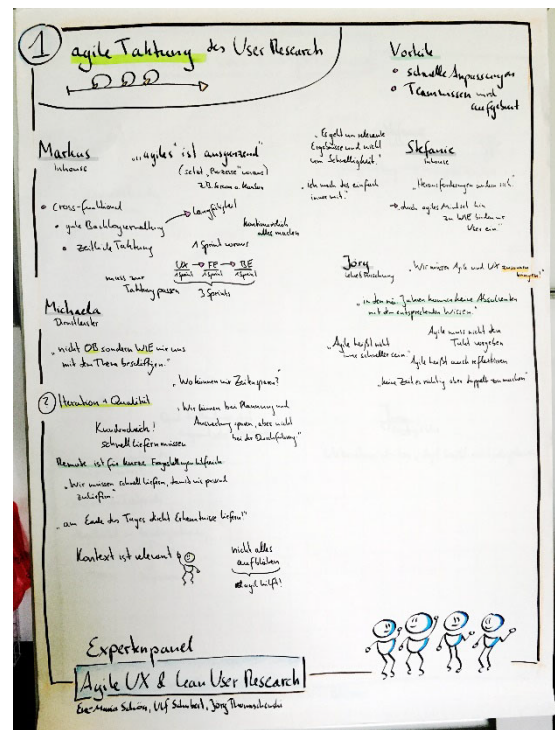 1 agile Taktung des User Research
Vorteile
• schnelle Anpassungen
• Teamwissen wird
aufgebaut
Markus
Inhouse
„'agiles' ist ausreizend"
(setzt „Prozesse" voraus)
z.B. Scrum o. Kanban
• cross-funktional
• gute Backlogverwaltung
→ Langfristigkeit
• zeitliche Taktung
kontinuierlich
alles machen
1 Sprint voraus
UX → FE → BE
1 Sprint 1 Sprint 1 Sprint
3 Sprints
muss zur
Taktung passen
„Es geht um relevante
Ergebnisse und nicht
um Schnelligkeit."
„Ich mach das einfach
immer mit."
Stefanie
Inhouse
„Herausforderungen ändern sich."
→ durch agiles Mindset hin
zu WIE binden wir
User ein"
Jörg
Lehre & Forschung
„Wir müssen Agile und UX zusammen
bringen!"
„in den nä. Jahren kommen keine Absolventen
mit dem entsprechenden Wissen."
„Agile heißt nicht
nur schneller sein"
Agile muss nicht den
Takt vorgeben
Agile heißt auch reflektieren
„keine Zeit es richtig aber doppelt zu machen"
Michaela
Dienstleister
„nicht OB sondern WIE wir uns
mit dem Thema beschäftigen."
2 Iteration + Qualität
„Wo können wir Zeit sparen?"
„Wir können bei Planung und
Auswertung sparen, aber nicht
bei der Durchführung"
Kundendruck!
schnell liefern müssen
Remote ist für kurze Fragestellungen hilfreich
„Wir müssen schnell liefern, damit wir passend
zuliefern."
„am Ende des Tages dicht Erkenntnisse liefern!"
Kontext ist relevant
nicht alles
aufblähen
agil hilft!
Expertenpanel
Agile UX & Lean User Research
Eva-Maria Schön, Ulf Schubert, Jörg Thomaschewski